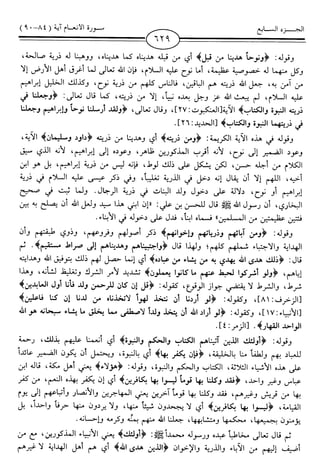 الجـزء السـابع
سـورة الانعـام آية (٨٤-٩٠)
٦٢٩
وقوله: ﴿ونوحاً هدينا من قبل﴾ أي من قبله هديناه كما هديناه، ووهبنا له ذرية صالحة،
وكل منهما له خصوصية عظيمة، أما نوح عليه السلام، فإن الله تعالى لما أغرق أهل الأرض إلا
من آمن به، جعل الله ذريته هم الباقين، فالناس كلهم من ذرية نوح، وكذلك الخليل إبراهيم
عليه السلام، لم يبعث الله عز وجل بعده نبياً، إلا من ذريته، كما قال تعالى: ﴿وجعلنا في
ذريته النبوة والكتاب﴾ الآية[العنكبوت: ٢٧]، وقال تعالى، ﴿ولقد أرسلنا نوحاً وإبراهيم وجعلنا
في ذريتهما النبوة والكتاب﴾ [الحديد: ٢٦].
وقوله في هذه الآية الكريمة: ﴿ومن ذريته﴾ أي وهدينا من ذريته ﴿داود وسليمان﴾ الآية،
وعود الضمير إلى نوح، لأنه أقرب المذكورين ظاهر، وعوده إلى إبراهيم، لأنه الذي سيق
الكلام من أجله حسن، لكن يشكل على ذلك لوط، فإنه ليس من ذرية إبراهيم، بل هو ابن
أخيه، اللهم إلا أن يقال إنه دخل في الذرية تغليباً، وفي ذكر عيسى عليه السلام في ذرية
إبراهيم أو نوح، دلالة على دخول ولد البنات في ذرية الرجال. ولما ثبت في صحيح
البخاري، أن رسول الله ﷺ قال للحسن بن علي: «إن ابني هذا سيد ولعل الله أن يصلح به بين
فئتين عظيمتين من المسلمين» فسماه ابناً، فدل على دخوله في الأبناء.
وقوله: ﴿ومن آبائهم وذرياتهم وإخوانهم﴾ ذكر أصولهم وفروعهم، وذوي طبقتهم وأن
الهداية والاجتباء شملهم كلهم؛ ولهذا قال ﴿واجتبيناهم وهديناهم إلى صراط مستقيم﴾. ثم
قال: ﴿ذلك هدى الله يهدي به من يشاء من عباده﴾ أي إنما حصل لهم ذلك بتوفيق الله وهدايته
إياهم، ﴿ولو أشركوا لحبط عنهم ما كانوا يعملون﴾ تشديد لأمر الشرك وتغليظ لشأنه، وهذا
شرط، والشرط لا يقتضي جواز الوقوع، كقوله: ﴿قل إن كان للرحمن ولد فأنا أول العابدين﴾
[الزخرف: ٨١]، وكقوله: ﴿لو أردنا أن نتخذ لهواً لاتخذناه من لدنا إن كنا فاعلين﴾
[الأنبياء: ١٧]، وكقوله: ﴿لو أراد الله أن يتخذ ولداً لاصطفى مما يخلق ما يشاء سبحانه هو الله
الواحد القهار﴾. [الزمر: ٤].
وقوله: ﴿أولئك الذين آتيناهم الكتاب والحكم والنبوة﴾ أي أنعمنا عليهم بذلك، رحمة
للعباد بهم ولطفاً منا بالخليقة، ﴿فإن يكفر بها﴾ أي بالنبوة، ويحتمل أن يكون الضمير عائداً
على هذه الأشياء الثلاثة، الكتاب والحكم والنبوة، وقوله: ﴿هؤلاء﴾ يعني أهل مكة، قاله ابن
عباس وغير واحد، ﴿فقد وكلنا بها قوماً ليسوا بها بكافرين﴾ أي إن يكفر بهذه النعم، من كفر
بها من قريش وغيرهم، فقد وكلنا بها قوماً آخرين يعني المهاجرين والأنصار وأتباعهم إلى يوم
القيامة، ﴿ليسوا بها بكافرين﴾ أي لا يجحدون شيئاً منها، ولا يردون منها حرفاً واحداً، بل
يؤمنون بجميعها، محكمها ومتشابهها، جعلنا الله منهم بمنه وكرمه وإحسانه.
ثم قال تعالى مخاطباً عبده ورسوله محمداً ﷺ: ﴿أولئك﴾ يعني الأنبياء المذكورين، مع من
أضيف إليهم من الآباء والذرية والإخوان ﴿الذين هدى الله﴾ أي هم أهل الهداية لا غيرهم